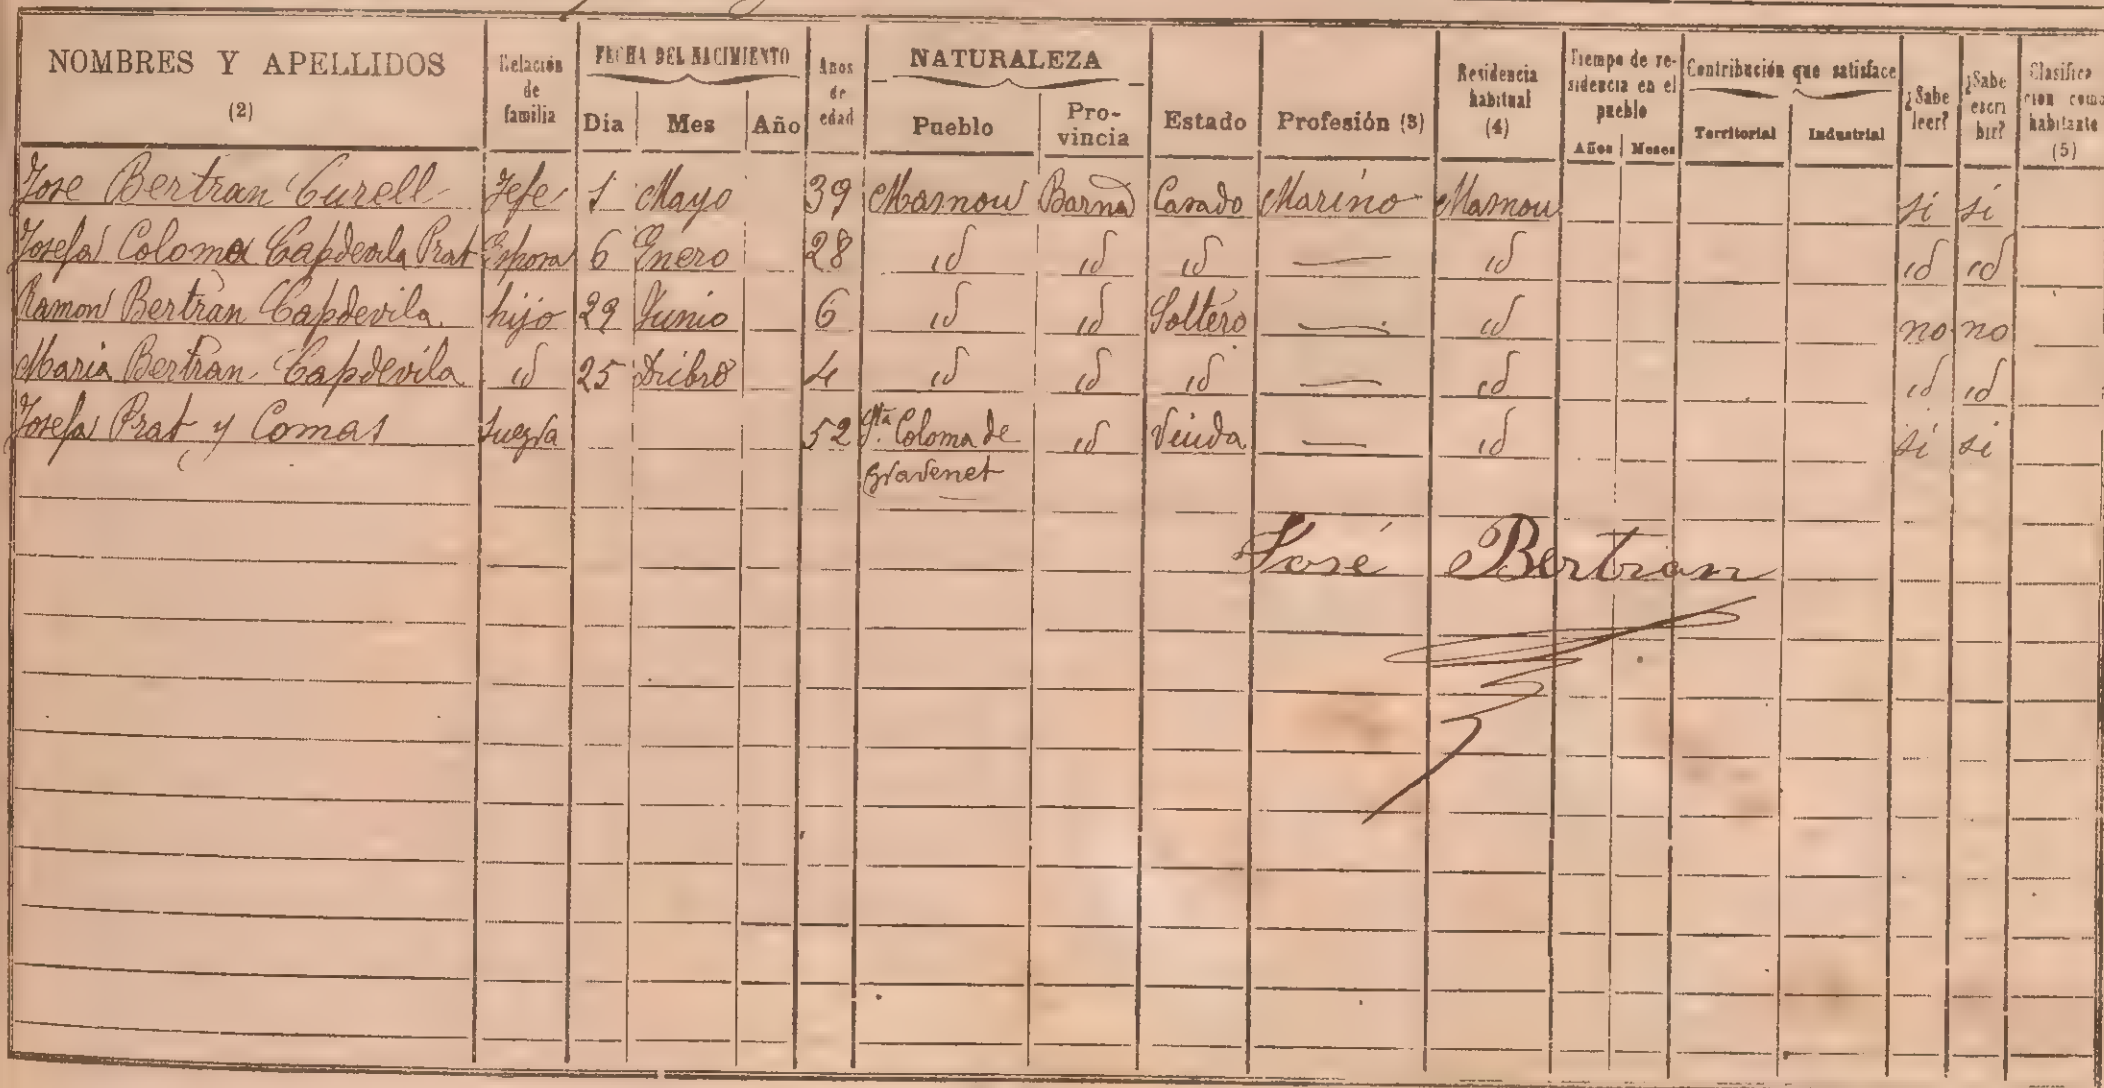 NOMBRES Y APELLIDOS (2) Relación de familia FECHA DEL NACIMIENTO Día Mes Año Años de edad NATURALEZA Pueblo Provincia Estado Profesión (3) Residencia habitual (4) Tiempo de residencia en el pueblo Años Meses Contribución que satisface Territorial Industrial ¿Sabe leer? ¿Sabe escribir? Clasificación como habitante (5)
Jose Bertran Curell Jefe 1 Mayo 39 Masnou Barna Casado Marino Masnou si si
Josefa Coloma Capdevila Prat Esposa 6 Enero 28 id id id — id id id
Ramon Bertran Capdevila hijo 29 Junio 6 id id Soltero — id no no
Maria Bertran Capdevila id 25 Dicbre 4 id id id — id id id
Josefa Prat y Comas Suegra 52 Sta. Coloma de id Viuda — id si si
Gravenet
José Bertran